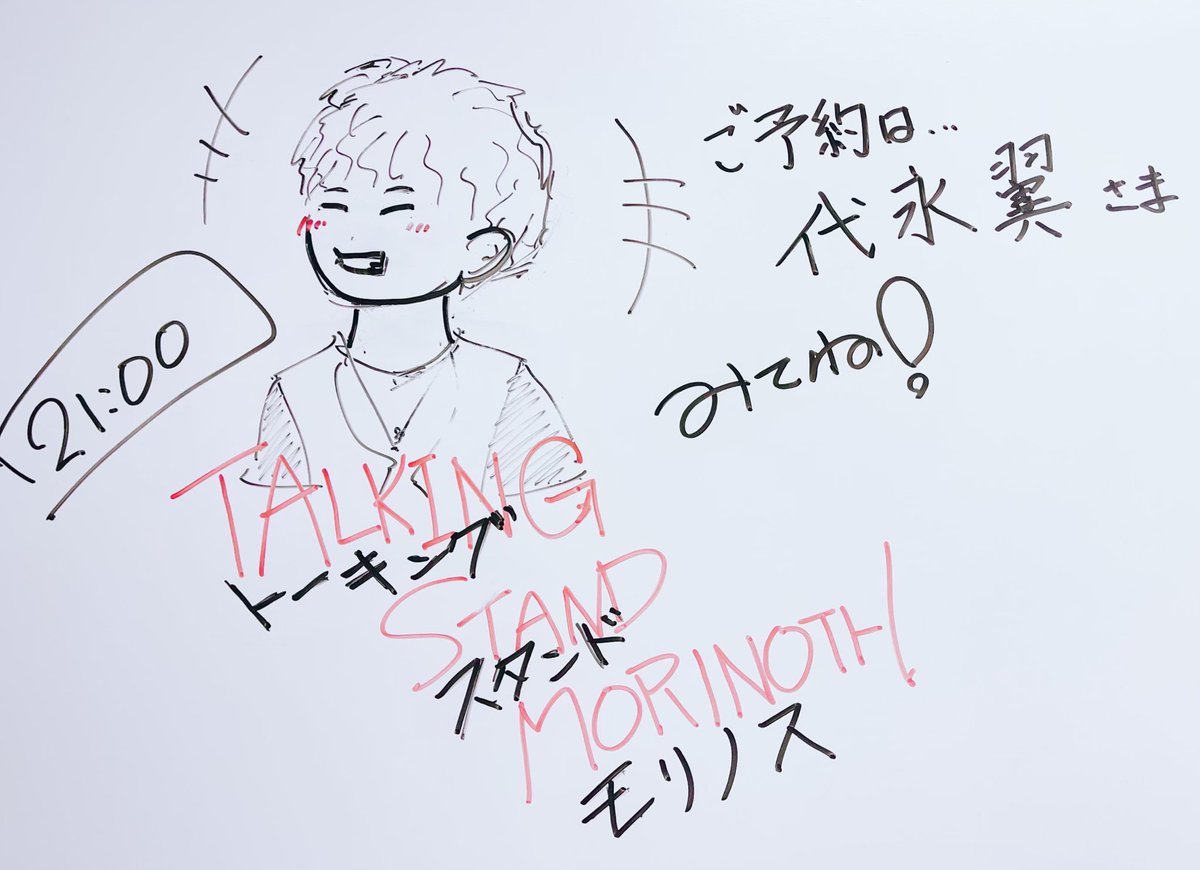 ご予約は…
代永翼さま
みてね!
21:00
TALKING
トーキング
STAND
スタンド
MORINOTH
モリノス